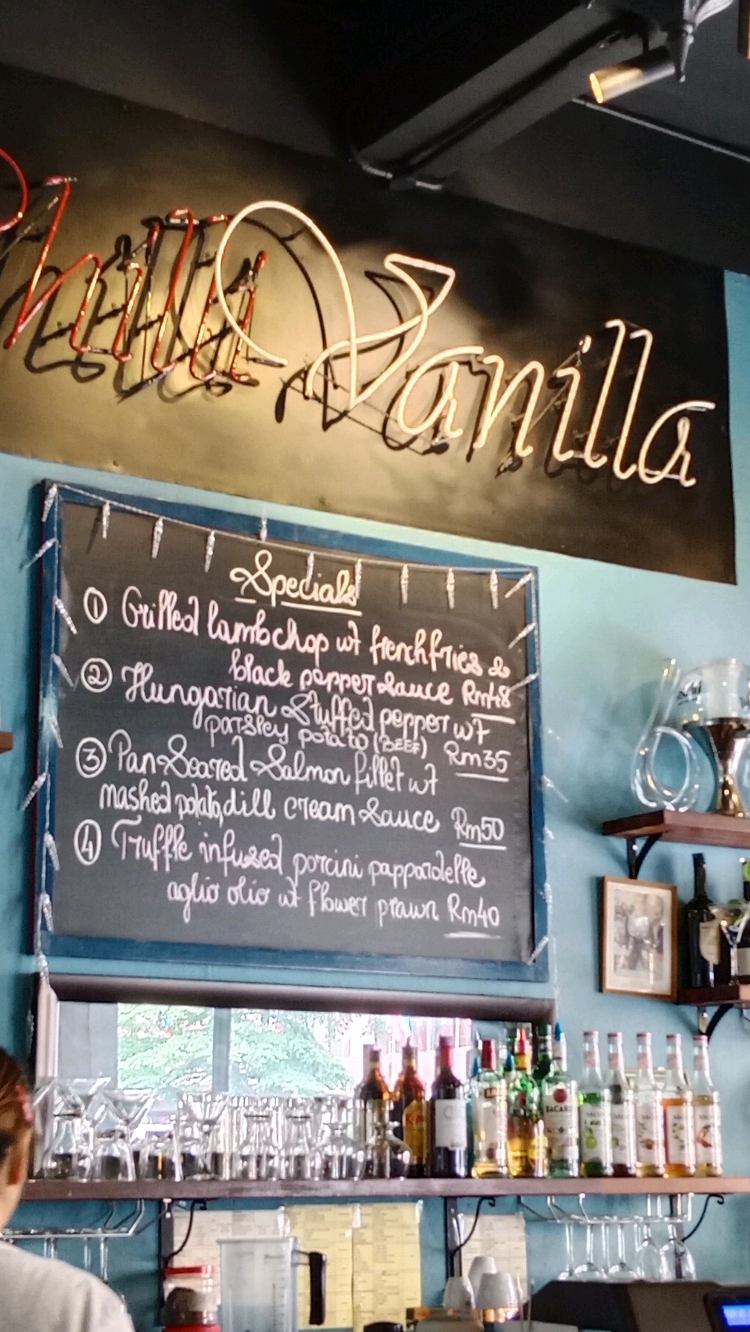 hilli Vanilla
Specials
① Grilled lambchop wt frenchfries &
black pepper sauce Rm48
② Hungarian Stuffed pepper wt
parsley potato (BEEF) Rm35
③ Pan-Seared Salmon fillet wt
mashed potato, dill cream sauce Rm50
④ Truffle infused porcini pappardelle
aglio olio wt flower prawn Rm40
BACARDI